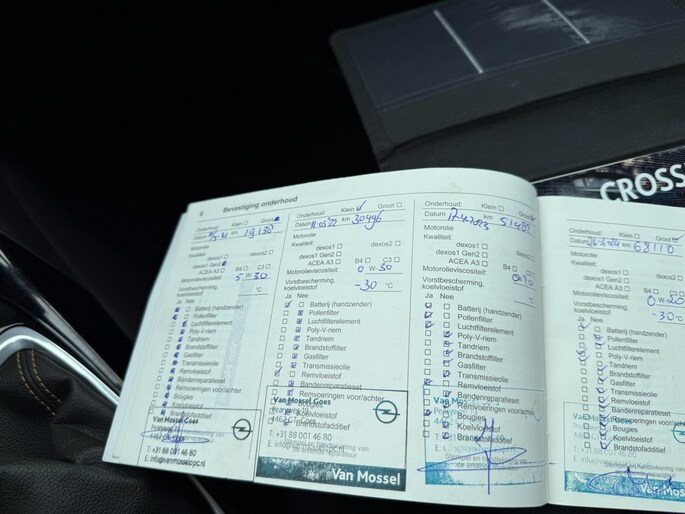 8 Bevestiging onderhoud
Onderhoud: Klein Groot
Datum km 19130
Motorolie
Kwaliteit:
dexos1 dexos2
dexos1 Gen2
ACEA A3 B4 C3
Motorolieviscositeit: 5 W-30
Vorstbescherming,
koelvloeistof °C
Ja Nee
Batterij (handzender)
Pollenfilter
Luchtfilterelement
Poly-V-riem
Tandriem
Brandstoffilter
Gasfilter
Transmissieolie
Remvloeistof
Bandenreparatieset
Remvoeringen voor/achter
Bougies
Koelvloeistof
Brandstofadditief
Van Mossel Goes
T: +31 88 001 46 80
E: info@vanmosselopc.nl
Onderhoud: Klein Groot
Datum 11-03-22 km 30496
Motorolie
Kwaliteit:
dexos1 dexos2
dexos1 Gen2
ACEA A3 B4 C3
Motorolieviscositeit: 0 W-30
Vorstbescherming,
koelvloeistof -30 °C
Ja Nee
Batterij (handzender)
Pollenfilter
Luchtfilterelement
Poly-V-riem
Tandriem
Brandstoffilter
Gasfilter
Transmissieolie
Remvloeistof
Bandenreparatieset
Remvoeringen voor/achter
Van Mossel Goes
Koelvloeistof
Brandstofadditief
T: +31 88 001 46 80
Van Mossel
Onderhoud: Klein Groot
Datum km
Motorolie
Kwaliteit:
dexos1 dexos2
dexos1 Gen2
ACEA A3 B4 C3
Motorolieviscositeit:
Vorstbescherming,
koelvloeistof °C
Ja Nee
Batterij (handzender)
Pollenfilter
Luchtfilterelement
Poly-V-riem
Tandriem
Brandstoffilter
Gasfilter
Transmissieolie
Remvloeistof
Bandenreparatieset
Remvoeringen voor/achter
Bougies
Koelvloeistof
Brandstofadditief
T: +31 88 001 46 80
Onderhoud: Klein Groot
Datum 26-2-24 km 68110
Motorolie
Kwaliteit:
dexos1
dexos1 Gen2
ACEA A3 B4
Motorolieviscositeit: 0 W-20
Vorstbescherming,
koelvloeistof -30 °C
Ja Nee
Batterij (handzender)
Pollenfilter
Luchtfilterelement
Poly-V-riem
Tandriem
Brandstoffilter
Gasfilter
Transmissieolie
Remvloeistof
Bandenreparatieset
Remvoeringen voor/achter
Bougies
Koelvloeistof
Brandstofadditief
Van Mossel
CROSS